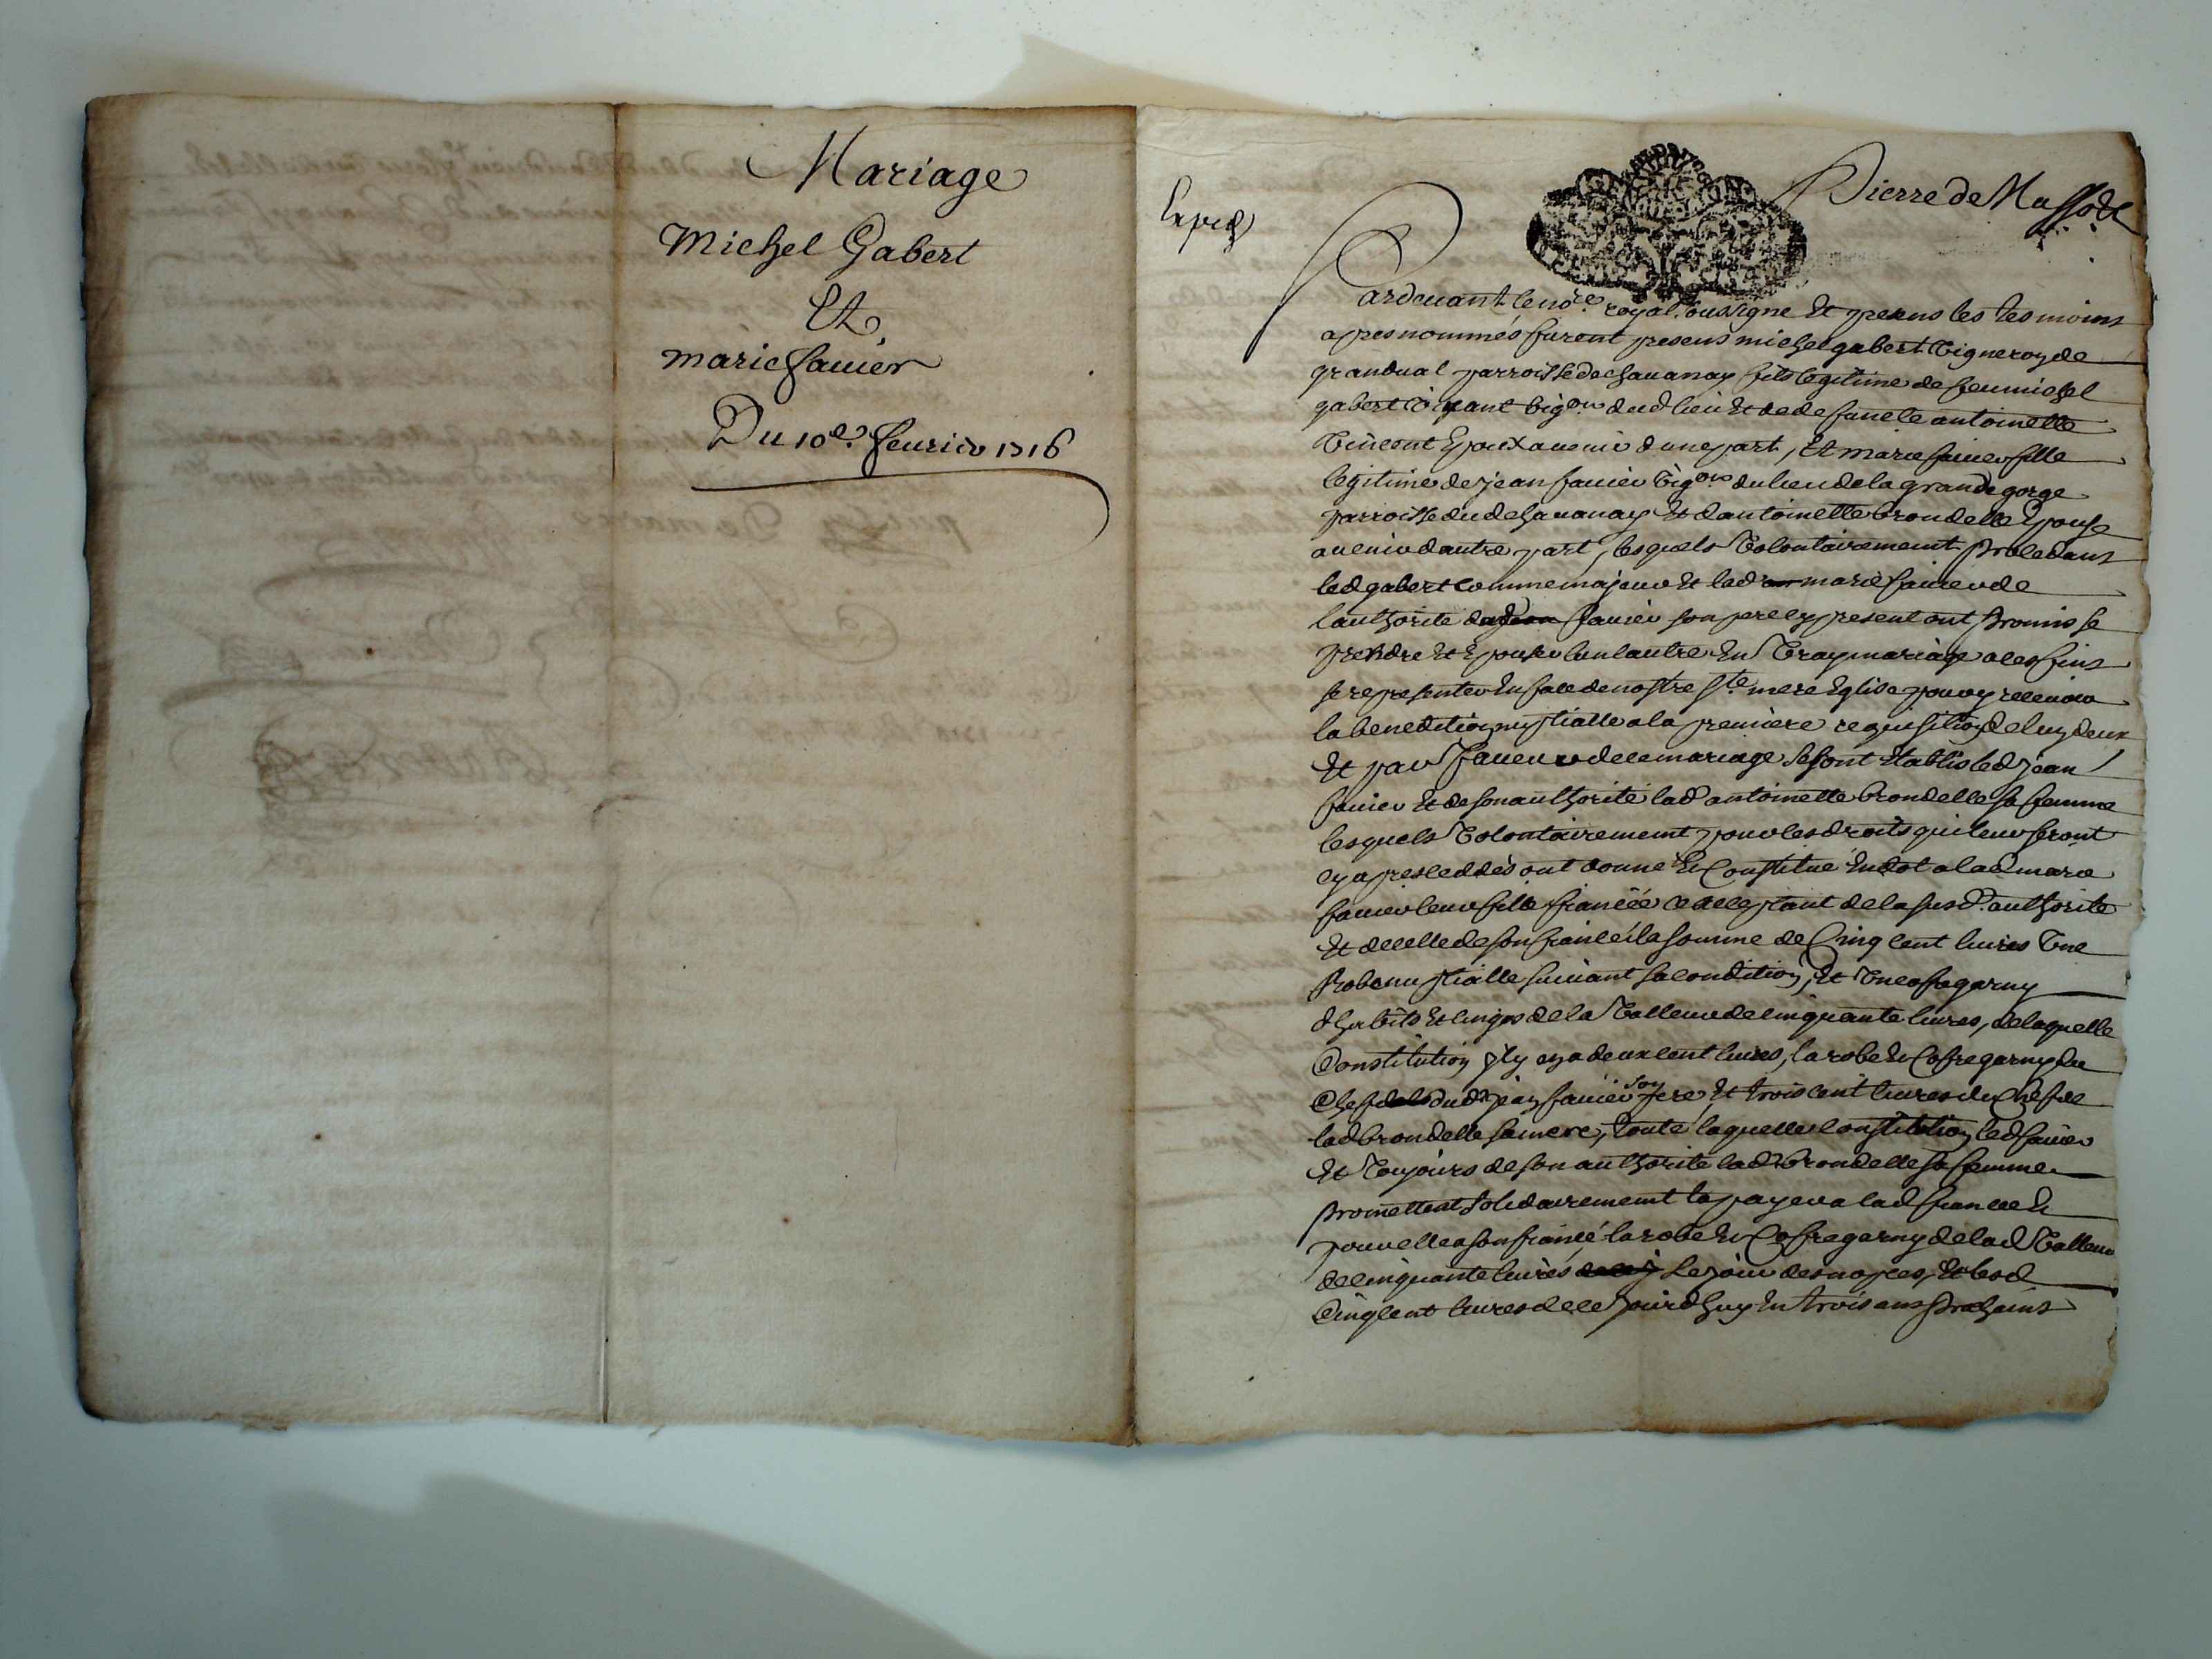 Mariage
Michel Gabert
Et
marie fauier
Du 10e. feurier 1716
Exped
Pierre de Masso
Pardeuant le nore. royal sousigne Et presens les tesmoins
apres nommés furent presens michel gabert vigneron de
grandual parroisse de chauanay fils legitime de feu michel
gabert viuant vigon. dud lieu et de defuncte antoinette
vincent Epoux auenir d'une part, Et marie fauier fille
legitime de jean fauier vigon du lieu de la grande gorge
parroisse dud chauanay et d'antoinette brondelle Epouse
auenir d'autre part, lesquels volontairement procedans
led gabert comme majeur et lad marie fauier de
l'authorité dud fauier son pere cy present ont promis se
prendre et Epouser l'un l'autre En vray mariage a ces fins
se representer En face de nostre Ste. mere Eglise pour y receuoir
la benedition nuptialle a la premiere requisition de l'un d'eux
Et par faueur de ce mariage se sont Etablis led jean
fauier et de son authorité lad antoinette brondelle sa femme
lesquels volontairement pour les droits qui leur seront
cy apres ceddés ont donné Et Constitué En dot a lad marie
fauier leur fille fiancée acceptant de la susd. authorité
Et de celle de son fiancé la somme de Cinq cent liures Vne
Robe nuptialle suiuant sa condition, et Vn cofre garny
d'habits et linges de la valleur de cinquante liures, de laquelle
Constitution il y en a deux cent liures, la robe Et Cofre garny du
Chef dud jean fauier son pere Et trois cent liures du Chef de
lad brondelle sa mere, toute laquelle constitution led fauier
Et toujours de son authorité lad brondelle sa femme
promettent solidairement la payer a lad fiancée Et
pour elle a son fiancé la robe Et Cofre garny de lad valleur
de cinquante liures le jour des nopces, Et les d
Cinq cent liures de ce jourd'huy En trois ans prochains